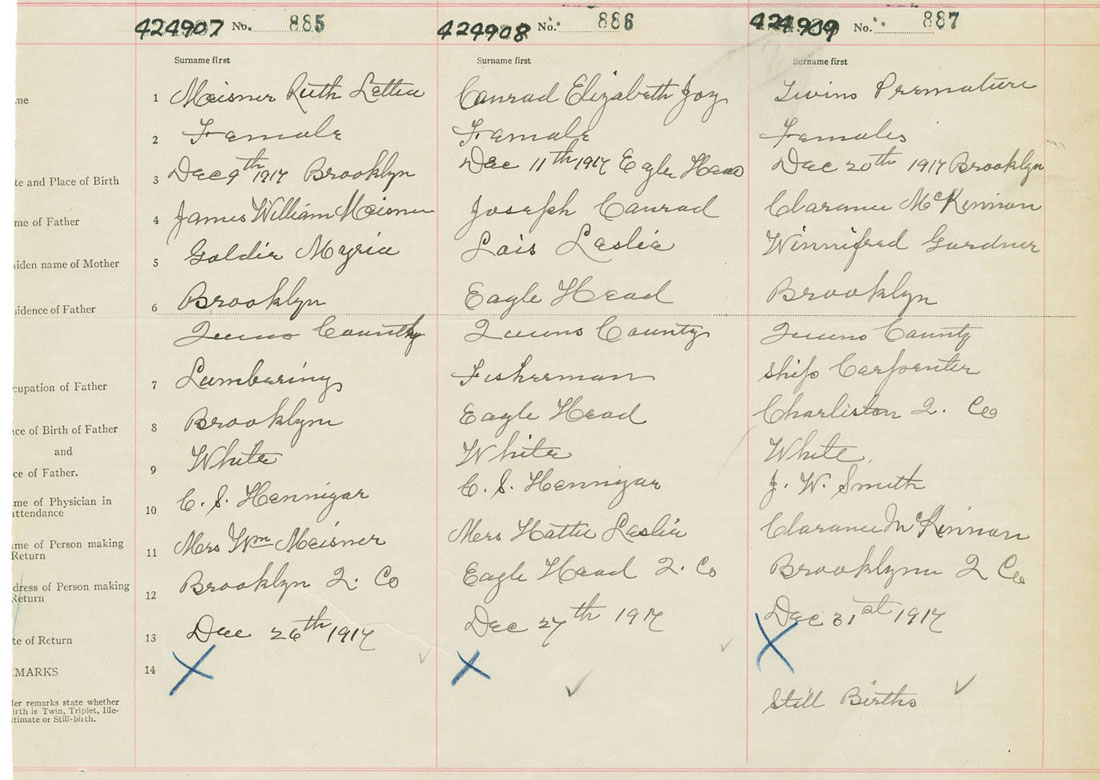 424907 No. 885 424908 No. 886 424909 No. 887
Surname first Surname first Surname first
me 1 Meisner Ruth Lettia Conrad Elizabeth Joy Twins Premature
2 Female Female Females
te and Place of Birth 3 Dec 9th 1917 Brooklyn Dec 11th 1917 Eagle Head Dec 20th 1917 Brooklyn
me of Father 4 James William Meisner Joseph Conrad Clarance McKinnon
aiden name of Mother 5 Goldie Myria Lois Leslie Winnifred Gardner
sidence of Father 6 Brooklyn Eagle Head Brooklyn
Queens County Queens County Queens County
cupation of Father 7 Lumbering Fisherman Ship Carpenter
ce of Birth of Father 8 Brooklyn Eagle Head Charliston Q. Co
and
ce of Father. 9 White White White
me of Physician in attendance 10 C. S. Hennigar C. S. Hennigar J. W. Smith
ame of Person making Return 11 Mrs Wm Meisner Mers Hattie Leslie Clarance McKinnon
dress of Person making Return 12 Brooklyn Q. Co Eagle Head Q. Co Brooklynn Q Co
te of Return 13 Dec 26th 1917 Dec 27th 1917 Dec 31st 1917
EMARKS 14 X X X
der remarks state whether
irth is Twin, Triplet, Ille-
timate or Still-birth. Still Births